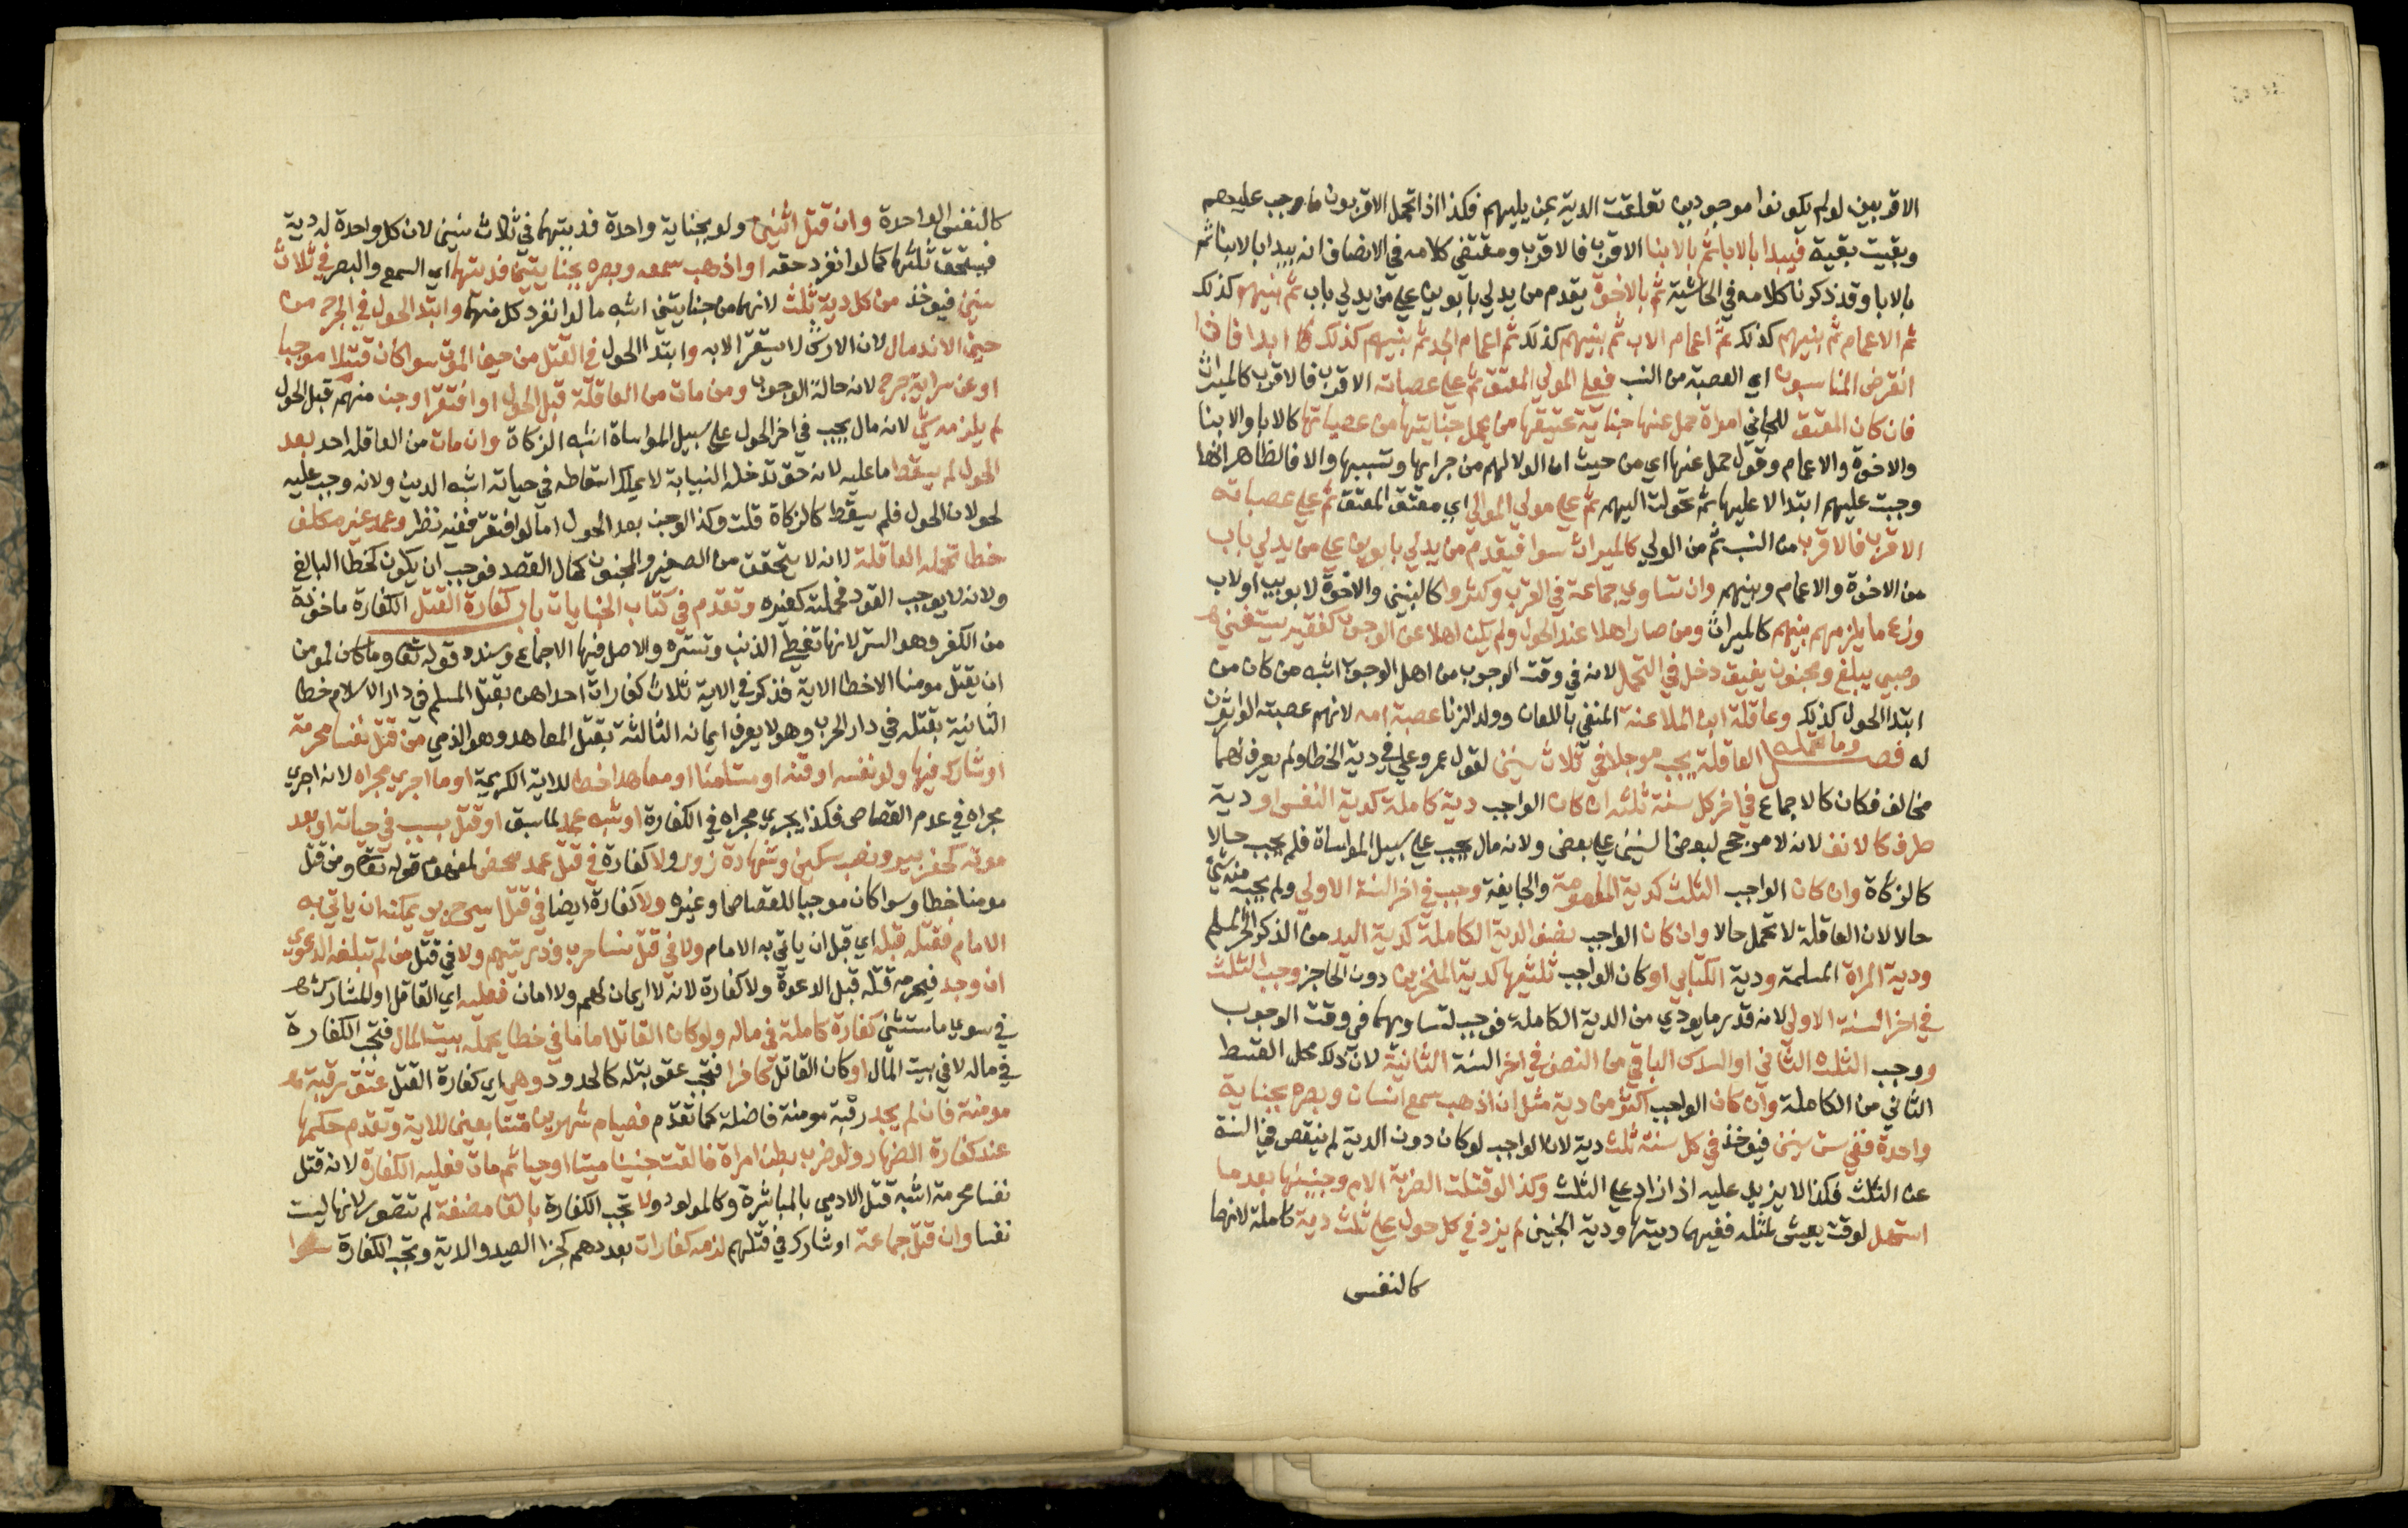 الاقربين لو لم يكونوا موجودين تعلقت الدية بمن يليهم فكذا اذا تحمل الاقربون ما وجب عليهم
وبقيت بقية فيبدا بالابا ثم بالابنا الاقرب فالاقرب ومقتضى كلامه في الانصاف انه يبدا بالابنا ثم
بالابا وقد ذكرنا كلامه في الحاشية ثم بالاخوة يقدم من يدلي بابوين على من يدلي باب ثم بنيهم كذلك
ثم الاعمام ثم بنيهم كذلك ثم اعمام الاب ثم بنيهم كذلك ثم اعمام الجد ثم بنيهم كذلك ابدا فاذا
انقرض المناسبون اي العصبة من النسب فعلى المولي المعتق ثم على عصباته الاقرب فالاقرب كالميراث
فان كان المعتق للجاني امراة حمل عنها جناية عتيقها من يحمل جنايتها من عصباتها كالابا والابنا
والاخوة والاعمام وقول حمل عنها اي من حيث ان الولا لهم من جرايها وتسببها والا فالظاهر انها
وجبت عليهم ابتدا لا عليها ثم تحولت اليهم ثم على مولي الموالي اي معتق المعتق ثم على عصباته
الاقرب فالاقرب من النسب ثم من الولي كالميراث سوا فيقدم من يدلي بابوين على من يدلي باب
من الاخوة والاعمام وبنيهم وان تساوي جماعة في القرب وكثروا كالبنين والاخوة لابويين او لاب
وزع ما يلزمهم بينهم كالميراث ومن صار اهلا عند الحول ولم يكن اهلا عن الوجوب كفقير يستغني
وصبي يبلغ ومجنون يفيق دخل في التحمل لانه في وقت الوجوب من اهل الوجوب اشبه من كان من
ابتدا الحول كذلك وعاقلة ابن الملاعنة المنفي باللعان وولد الزنا عصبة امه لانهم عصبته الوارثون
له فصل وما تحمله العاقلة يجب موجلا في ثلاث سنين لقول عمر وعلي في دية الخطا ولم يعرف لهما
مخالف فكان كالاجماع في اخر كل سنة ثلثه ان كان الواجب دية كاملة كدية النفس او دية
طرف كالانف لانه لا مرجح لبعض السنين على بعض ولانه مال يجب على سبيل المواساة فلم يجب حالا
كالزكاة وان كان الواجب الثلث كدية المامومة والجايفة وجب في اخر السنة الاولي ولم يجب منه شي
حالا لان العاقلة لا تحمل حالا وان كان الواجب نصف الدية الكاملة كدية اليد من الذكر الحر المسلم
ودية المراة المسلمة ودية الكتابي او كان الواجب ثلثيها كدية المنخرين دون الحاجز وجب الثلث
في اخر السنة الاولي لانه قدر ما يودي من الدية الكاملة فوجب لتساويهما في وقت الوجوب
ووجب الثلث الثاني او السدس الباقي من النصف في اخر السنة الثانية لان ذلك محل القسط
الثاني من الكاملة وان كان الواجب اكثر من دية مثل ان اذهب سمع انسان وبصره بجناية
واحدة ففي ست سنين فيوخذ في كل سنة ثلث دية لان الواجب لو كان دون الدية لم ينقص في السنة
عن الثلث فكذا لا يزيد عليه اذا زاد على الثلث وكذا لو قتلت الضربة الام وجنينها بعد ما
استهل لوقت يعيش لمثله ففيهما ديتها ودية الجنين لم يزد في كل حول على ثلث دية كاملة لانها
كالنفس
كالنفس الواحدة وان قتل اثنين ولو بجناية واحدة فديتهما في ثلاث سنين لان كل واحدة له دية
فيستحق ثلثها كما لو انفرد حقه او اذهب سمعه وبصره بجنايتين فديتهما اي السمع والبصر في ثلاث
سنين فيوخذ من كل دية ثلث لانهما من جنايتين اشبه ما لو انفرد كل منهما وابتدا الحول في الجرح من
حين الاندمال لان الارش لا يستقر الا به وابتدا الحول في القتل من حين الموت سوا كان قتلا موجبا
او عن سراية جرح لانه حالة الوجوب ومن مات من العاقلة قبل الحول او افتقر او جن منهم قبل الحول
لم يلزمه شي لانه مال يجب في اخر الحول على سبيل المواساة اشبه الزكاة وان مات من العاقله احد بعد
الحول لم يسقط ما عليه لانه حق تدخله النيابة لا يملك اسقاطه في حياته اشبه الدين ولانه وجب عليه
لحولان الحول فلم يسقط كالزكاة قلت وكذا لو جن بعد الحول اما لو افتقر ففيه نظر وعمد غير مكلف
خطا تحمله العاقلة لانه لا يتحقق من الصغير والمجنون كمال القصد فوجب ان يكون كخطا البالغ
ولانه لا يوجب القود فحملته كغيره وتقدم في كتاب الجنايات باب كفارة القتل الكفارة ماخوذة
من الكفر وهو الستر لانها تغطي الذنب وتستره والاصل فيها الاجماع وسنده قوله تعالى وما كان لمومن
ان يقتل مومنا الا خطا الاية فذكر في الاية ثلاث كفارات احداهن بقتل المسلم في دار الاسلام خطا
الثانية بقتله في دار الحرب وهو لا يعرف ايمانه الثالثة بقتل المعاهد وهو الذمي من قتل نفسا محرمة
او شارك فيها ولو نفسه او قنه او مستامنا او معاهدا خطا للاية الكريمة او ما اجري مجراه لانه اجري
مجراه في عدم القصاص فكذا يجري مجراه في الكفارة او شبه عمد لما سبق او قتل بسبب في حياته او بعد
موته كحفر بير ونصب سكين وشهادة زور ولا كفارة في قتل عمد محض لمفهوم قوله تعالى ومن قتل
مومنا خطا وسوا كان موجبا للقصاص او غيره ولا كفارة ايضا في قتل اسير حربي يمكنه ان ياتي به
الامام فقتله قبله اي قبل ان ياتي به الامام ولا في قتل نسا حرب وذريتهم ولا في قتل من لم تبلغه الدعوي
ان وجد فيحرم قتله قبل الدعوة ولا كفارة لانه لا ايمان لهم ولا امان فعليه اي القاتل او المشارك
في سوي ما ستثني كفارة كاملة في ماله ولو كان القاتل اماما في خطا يحمله بيت المال فتجب الكفارة
في ماله لا في بيت المال او كان القاتل كافرا فتجب عقوبة له كالحدود وهي اي كفارة القتل عتق رقبة
مومنة فان لم يجد رقبة مومنة فاضلة كما تقدم فصيام شهرين متتابعين للاية وتقدم حكمها
عند كفارة الظهار ولو ضرب بطن امراة فالقت جنينا ميتا او حيا ثم مات فعليه الكفارة لانه قتل
نفسا محرمة اشبه قتل الادمي بالمباشرة وكالمولود ولا تجب الكفارة بالقا مضغة لم تتصور لانها ليست
نفسا وان قتل جماعة او شارك في قتلهم لزمه كفارات بعددهم كجزا الصيد والدية وتجب الكفارة سوا